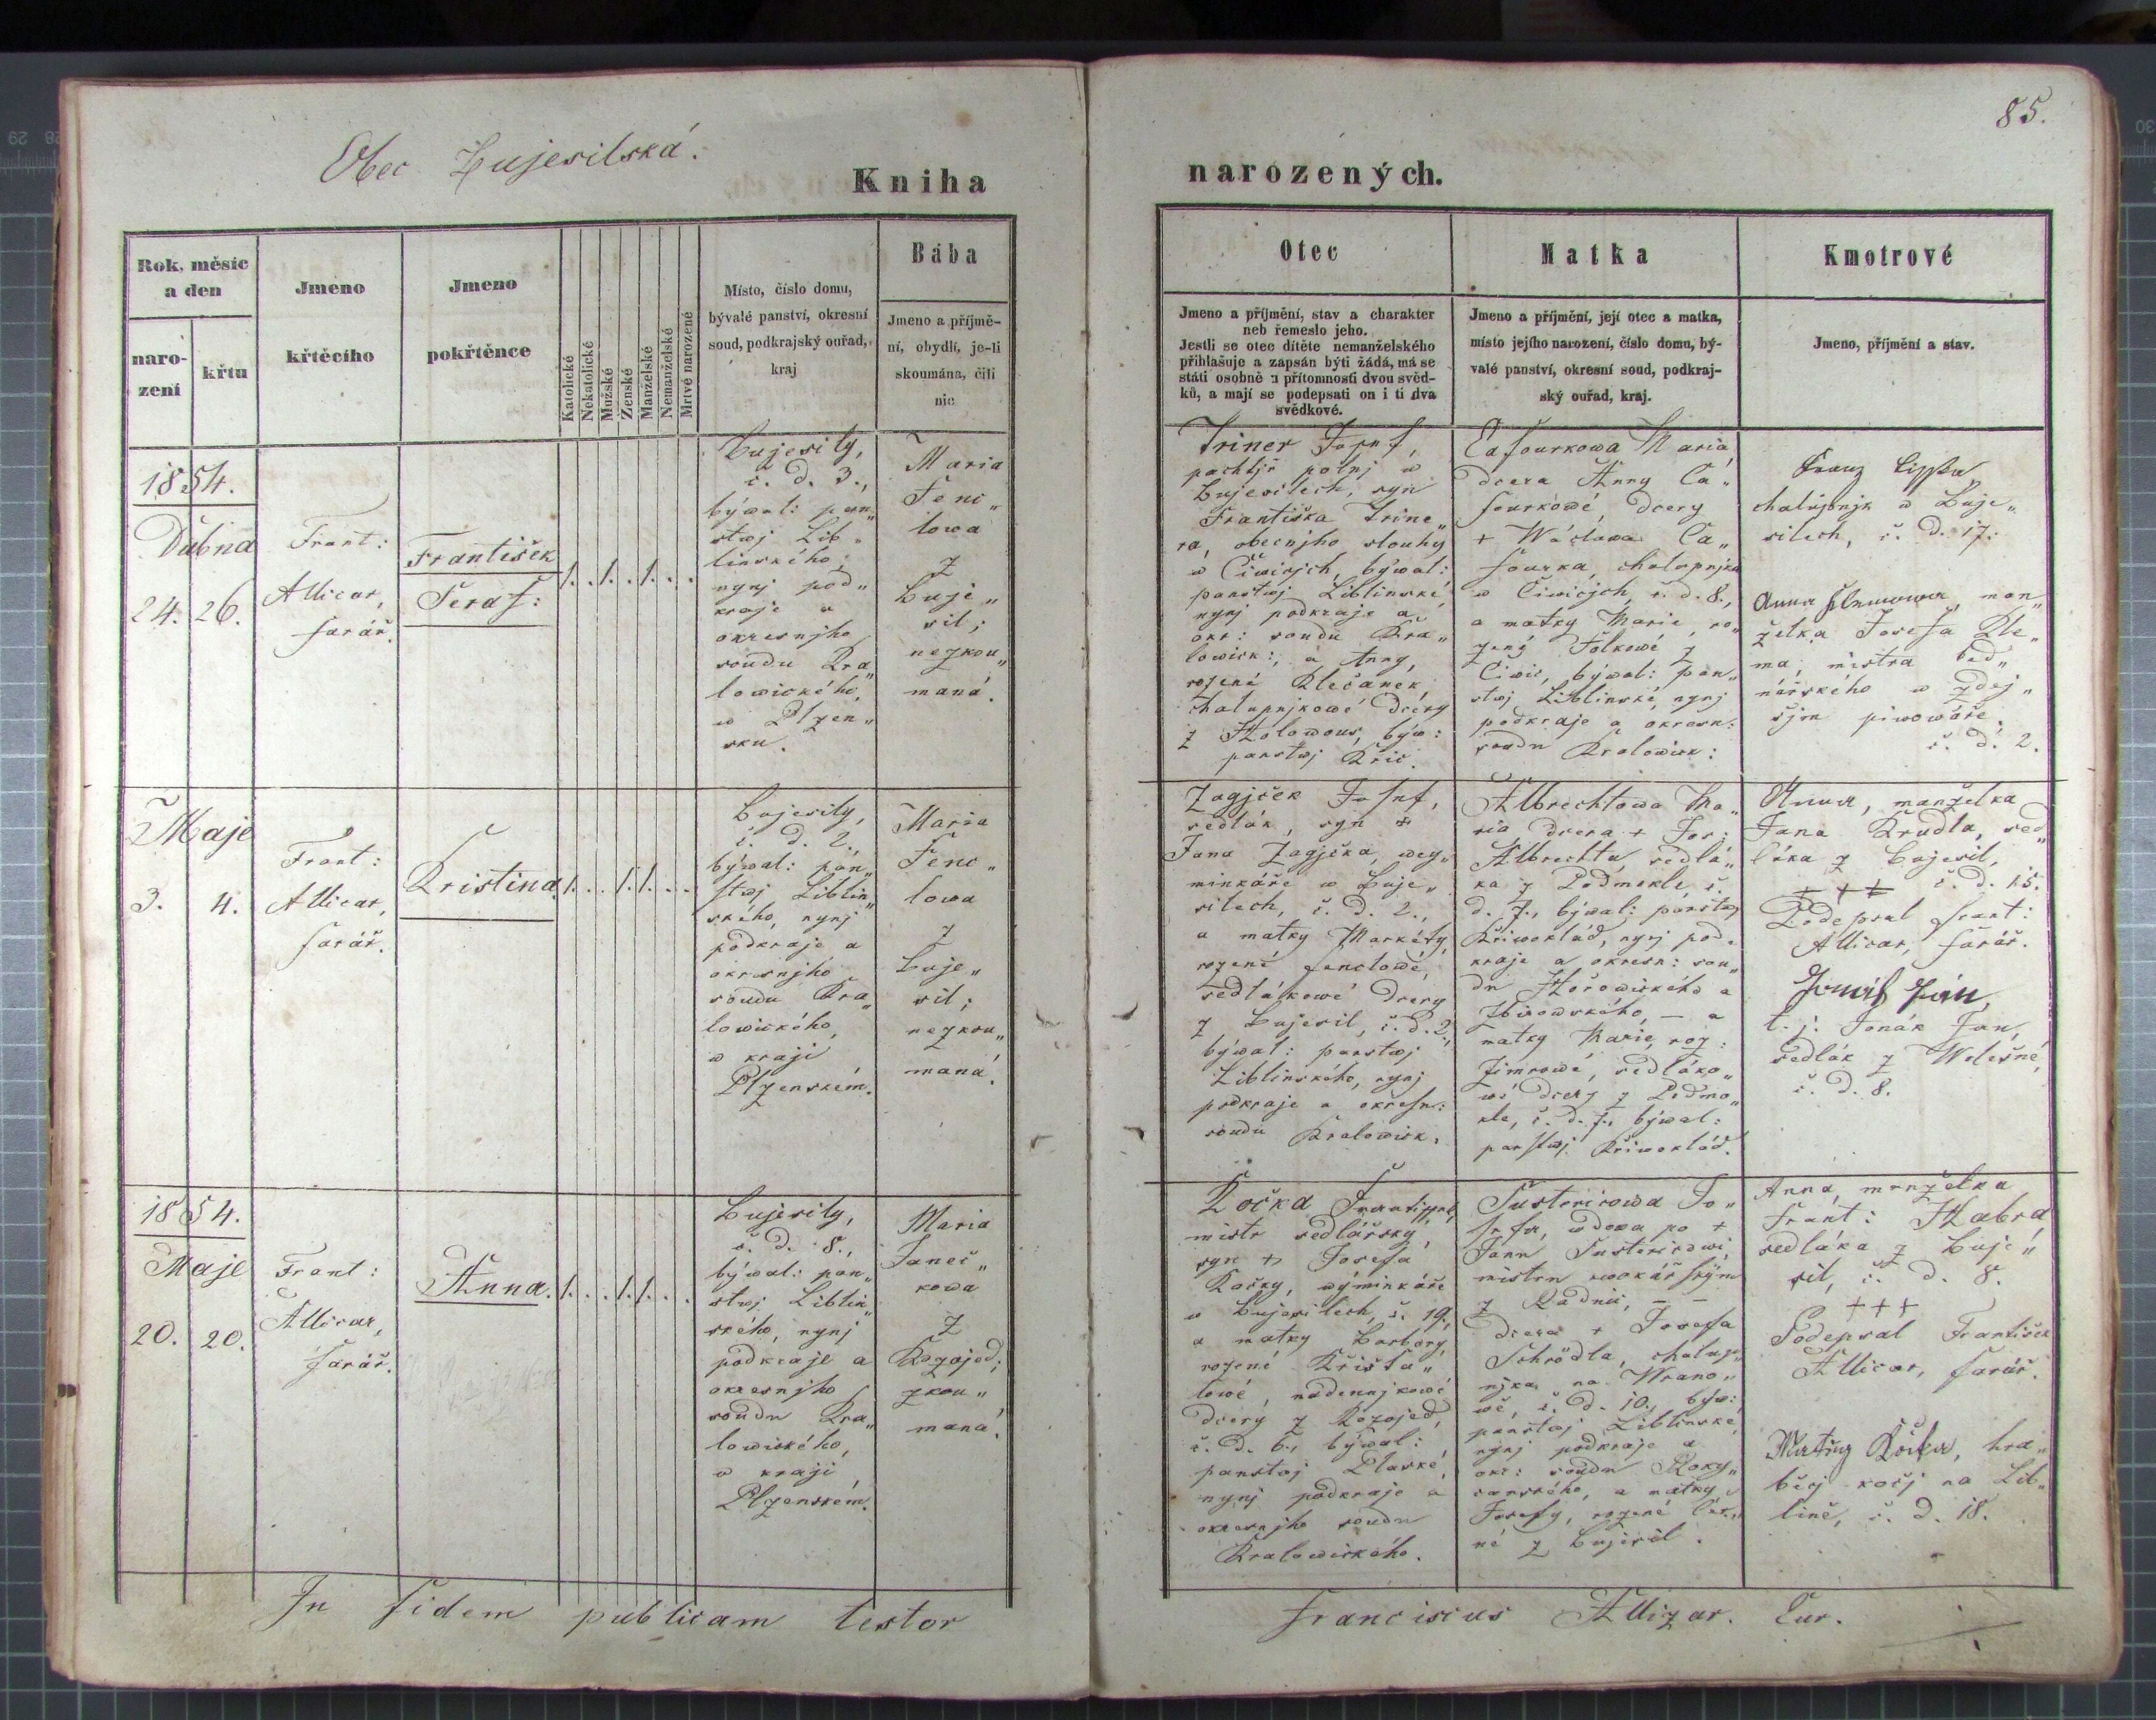 85.
Obec Bujesilská.
Kniha
narozených.
Rok, měsíc
a den
naro-
zení
křtu
Jmeno
křtěcího
Jmeno
pokřtěnce
Katolické
Nekatolické
Mužské
Ženské
Manželské
Nemanželské
Mrtvě narozené
Místo, číslo domu,
bývalé panství, okresní
soud, podkrajský ouřad,
kraj
Bába
Jmeno a příjmě-
ní, obydlí, je-li
skoumána, čili
nic
Otec
Jmeno a příjmění, stav a charakter
neb řemeslo jeho.
Jestli se otec dítěte nemanželského
přihlašuje a zapsán býti žádá, má se
státi osobně u přítomnosti dvou svěd-
ků, a mají se podepsati on i ti dva
svědkové.
Matka
Jmeno a příjmění, její otec a matka,
místo jejího narození, číslo domu, bý-
valé panství, okresní soud, podkraj-
ský ouřad, kraj.
Kmotrové
Jmeno, příjmění a stav.
1854.
Dubna
24. 26.
Frant:
Allicar,
farář.
František
Seraf:
1. . 1. . 1. . .
Bujesily,
č. d. 3.,
býwal: pan„
stwj Lib„
linského,
nynj pod„
kraje a
okresnjho
soudu Kra„
lowického,
w Plzen„
sku.
Maria
Fenc„
lowa
z
Buje„
sil;
nezkou„
maná.
Triner Josef,
pachtjř polnj w
Bujesilech, syn
Františka Trine„
ra, obecnjho slouhy
w Čiwicjch, býwal:
panstwj Liblinské,
nynj podkraje a
okr: soudu Kra„
lowick:, a Anny,
rozené Klečanek,
chalupnjkowé dcery
z Holowous, býw:
panstwj Křič.
Cafourkowa Maria,
dcera Anny Ca„
fourkowé, dcery
+ Wáclawa Ca„
fourka, chalupnjka
w Čiwicjch, č. d. 8.,
a matky Marie, ro„
zený Folkowé z
Čiwic, býwal: pan„
stwj Liblinské, nynj
podkraje a okresn:
soudu Kralowick:
Franz
chalupnjk w Buje„
silech, č. d. 17.
Anna Klemowa, man„
želka Josefa Kle„
ma, mistra bed„
nářského w zdej„
šjm piwowáře.
č. d. 2.
Maje
3. 4.
Frant:
Allicar,
farář.
Kristina.
1. . . 1. 1. . .
Bujesily,
č. d. 2.,
býwal: pan„
stwj Liblin„
ského, nynj
podkraje a
okresnjho
soudu Kra„
lowického,
w kraji
Plzenském.
Maria
Fenc„
lowa
z
Buje„
sil;
nezkou„
maná.
Zagjček Josef,
sedlák, syn +
Jana Zagjčka, wey„
minkáře w Buje„
silech, č. d. 2.,
a matky Markéty,
rozené Fenclowé,
sedlákowé dcery
z Bujesil, č. d. 2.,
býwal: panstwj
Liblinského, nynj
podkraje a okresn:
soudu Kralowick.
Albrechtowa Ma„
ria, dcera + Jos:
Albrechta, sedlá„
ka z Podmokle, č.
d. 7., býwal: panstwj
Křiwoklád, nynj pod„
kraje a okresn: sou„
du Hořowického a
Zbirowského, — a
matky Marie, roz:
Zimowé, sedláko„
wé dcery z Podmo„
kle, č. d. 7., býwal:
panstwj Křiwoklád.
Anna, manželka
Jana Krudla, sed„
láka z Bujesil,
+++ č. d. 15.
Podepsal Frant:
Allicar, farář.
Jonák Jan,
t. j. Jonák Jan,
sedlák z Welešné,
č. d. 8.
1854.
Maje
20. 20.
Frant:
Allicar,
farář.
Anna.
1. . . 1. 1. . .
Bujesily,
č. d. 8.,
býwal: pan„
stwj Liblin„
ského, nynj
podkraje a
okresnjho
soudu Kra„
lowického,
w kraji
Plzenském.
Maria
Janeč„
kowa
z
Kozojed;
zkou„
maná.
Kočka František,
mistr sedlářský,
syn + Josefa
Kočky, wýminkáře
w Bujesilech, č. 19.,
a matky Barbory,
rozené Křišťa„
lowé, nádennjkowé
dcery z Kozojed,
č. d. 6., býwal:
panstwj Plaské,
nynj podkraje a
okresnjho soudu
Kralowického.
Susterirowa Jo„
sefa, wdowa po +
Janu Susterirowi,
mistru kwokářským
z Radnic, — —
dcera + Josefa
Schrödla, chalup„
njka na Wrano„
wě, č. d. 10., býw:
panstwj Liblinské,
nynj podkraje a
okr: soudu Roky„
canského, a matky
Josefy, rozené Čer„
né z Bujesil.
Anna, manželka
Frant: Habra
sedláka z Buje„
sil, č. d. 8.
+++
Podepsal František
Allicar, farář.
Matěg Kočka, hra„
běcj kočj na Lib„
lině, č. d. 18.
In fidem publicam testor
Franciscus Allizar. Cur.